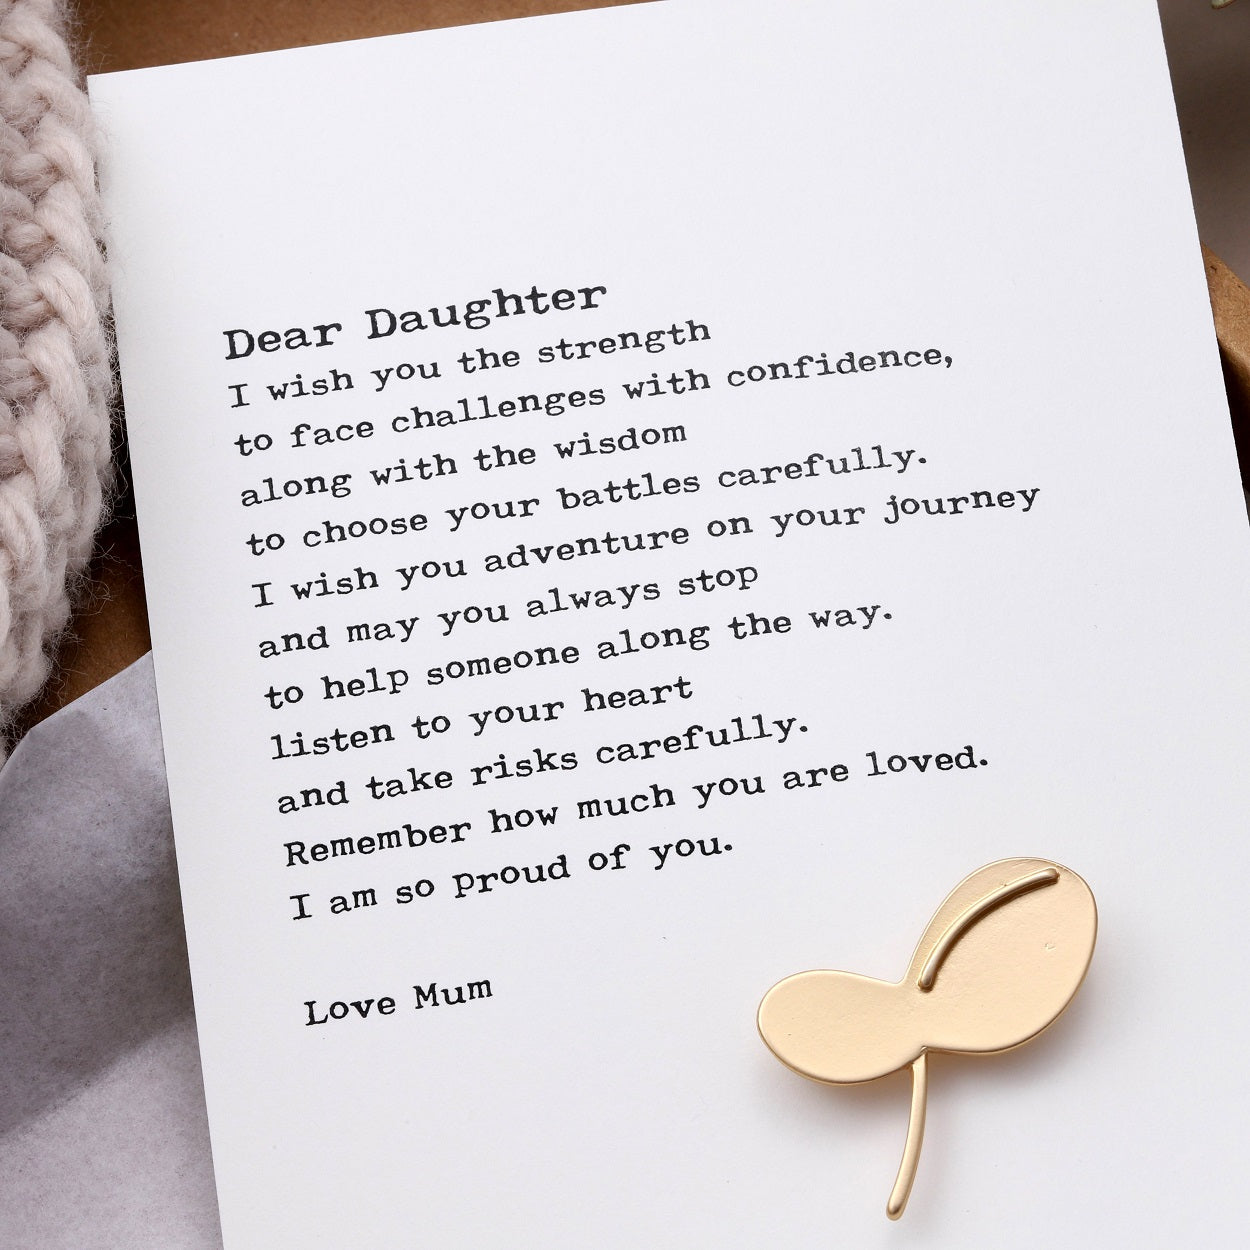 Dear Daughter
I wish you the strength
to face challenges with confidence,
along with the wisdom
to choose your battles carefully.
I wish you adventure on your journey
and may you always stop
to help someone along the way.
listen to your heart
and take risks carefully.
Remember how much you are loved.
I am so proud of you.
Love Mum